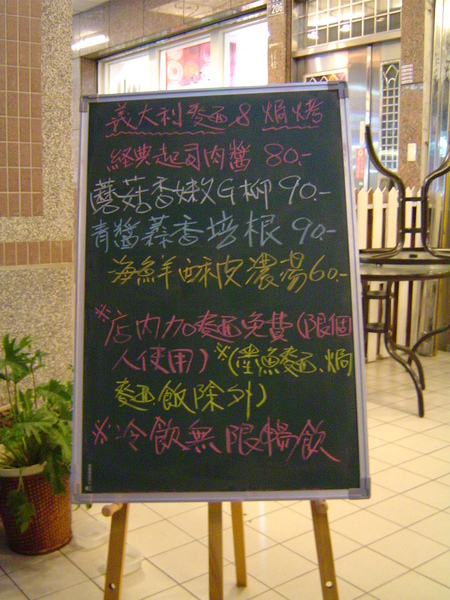 義大利麵 & 焗烤
經典起司肉醬 80.-
蘑菇香嫩G柳 90.-
青醬蒜香培根 90.-
海鮮酥皮濃湯 60.-
※店內加麵免費(限個
人使用) ※(墨魚麵、焗
麵飯除外)
※冷飲無限暢飲